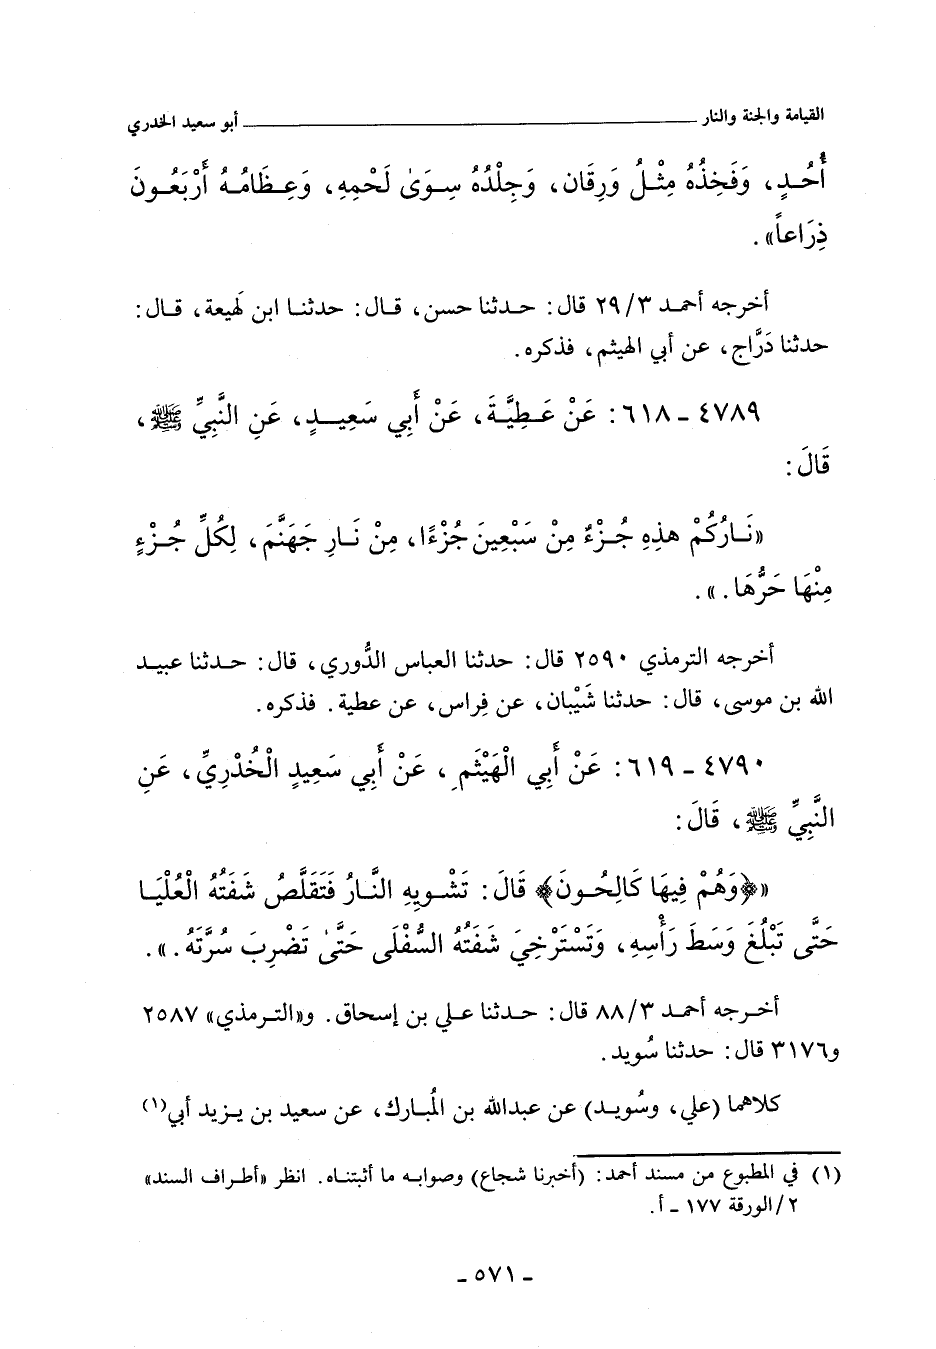 القيامة والجنة والنار ــــــــــــــــــــ أبو سعيد الخدري
أُحُـدٍ، وَفَخِذُهُ مِثْـلُ وَرِقَان، وَجِلْدُهُ سِوَىٰ لَحْمِهِ، وَعِظَامُـهُ أَرْبَعُـونَ
ذِرَاعاً».
أخرجه أحمـد ٢٩/٣ قال: حـدثنا حسن، قـال: حدثنـا ابن لَهيعة، قـال:
حدثنا دَرَّاج، عن أبي الهيثم، فذكره.
٤٧٨٩ ـ ٦١٨: عَنْ عَـطِيَّةَ، عَنْ أَبِي سَعِيـدٍ، عَنِ النَّبِيِّ ﷺ،
قَالَ:
«نَـارُكُمْ هذِهِ جُـزْءٌ مِنْ سَبْعِينَ جُزْءًا، مِنْ نَـارِ جَهَنَّمَ، لِكُلِّ جُـزْءٍ
مِنْهَا حَرُّهَا.».
أخرجه الترمذي ٢٥٩٠ قال: حدثنا العباس الدُّوري، قال: حـدثنا عبيـد
الله بن موسى، قال: حدثنا شَيْبان، عن فِراس، عن عطية. فذكره.
٤٧٩٠ ـ ٦١٩: عَنْ أَبِي الْهَيْثَمِ، عَنْ أَبِي سَعِيدٍ الْخُدْرِيِّ، عَنِ
النَّبِيِّ ﷺ، قَالَ:
«﴿وَهُمْ فِيهَا كَالِحُـونَ﴾ قَالَ: تَشْوِيهِ النَّـارُ فَتَقَلَّصُ شَفَتُهُ الْعُلْيَـا
حَتَّى تَبْلُغَ وَسَطَ رَأْسِهِ، وَتَسْتَرْخِيَ شَفَتُهُ السُّفْلَى حَتَّىٰ تَضْرِبَ سُرَّتَهُ.».
أخـرجه أحمـد ٨٨/٣ قال: حـدثنا عـلي بن إسحاق. و«التـرمذي» ٢٥٨٧
و٣١٧٦ قال: حدثنا سُويد.
كلاهما (علي، وسُويـد) عن عبدالله بن المُبارك، عن سعيد بن يـزيد أبي(١)
(١) في المطبوع من مسند أحمد: (أخبرنا شجاع) وصوابـه ما أثبتنـاه. انظر «أطـراف السند»
٢/الورقة ١٧٧ ـ أ.
ـ ٥٧١ ـ